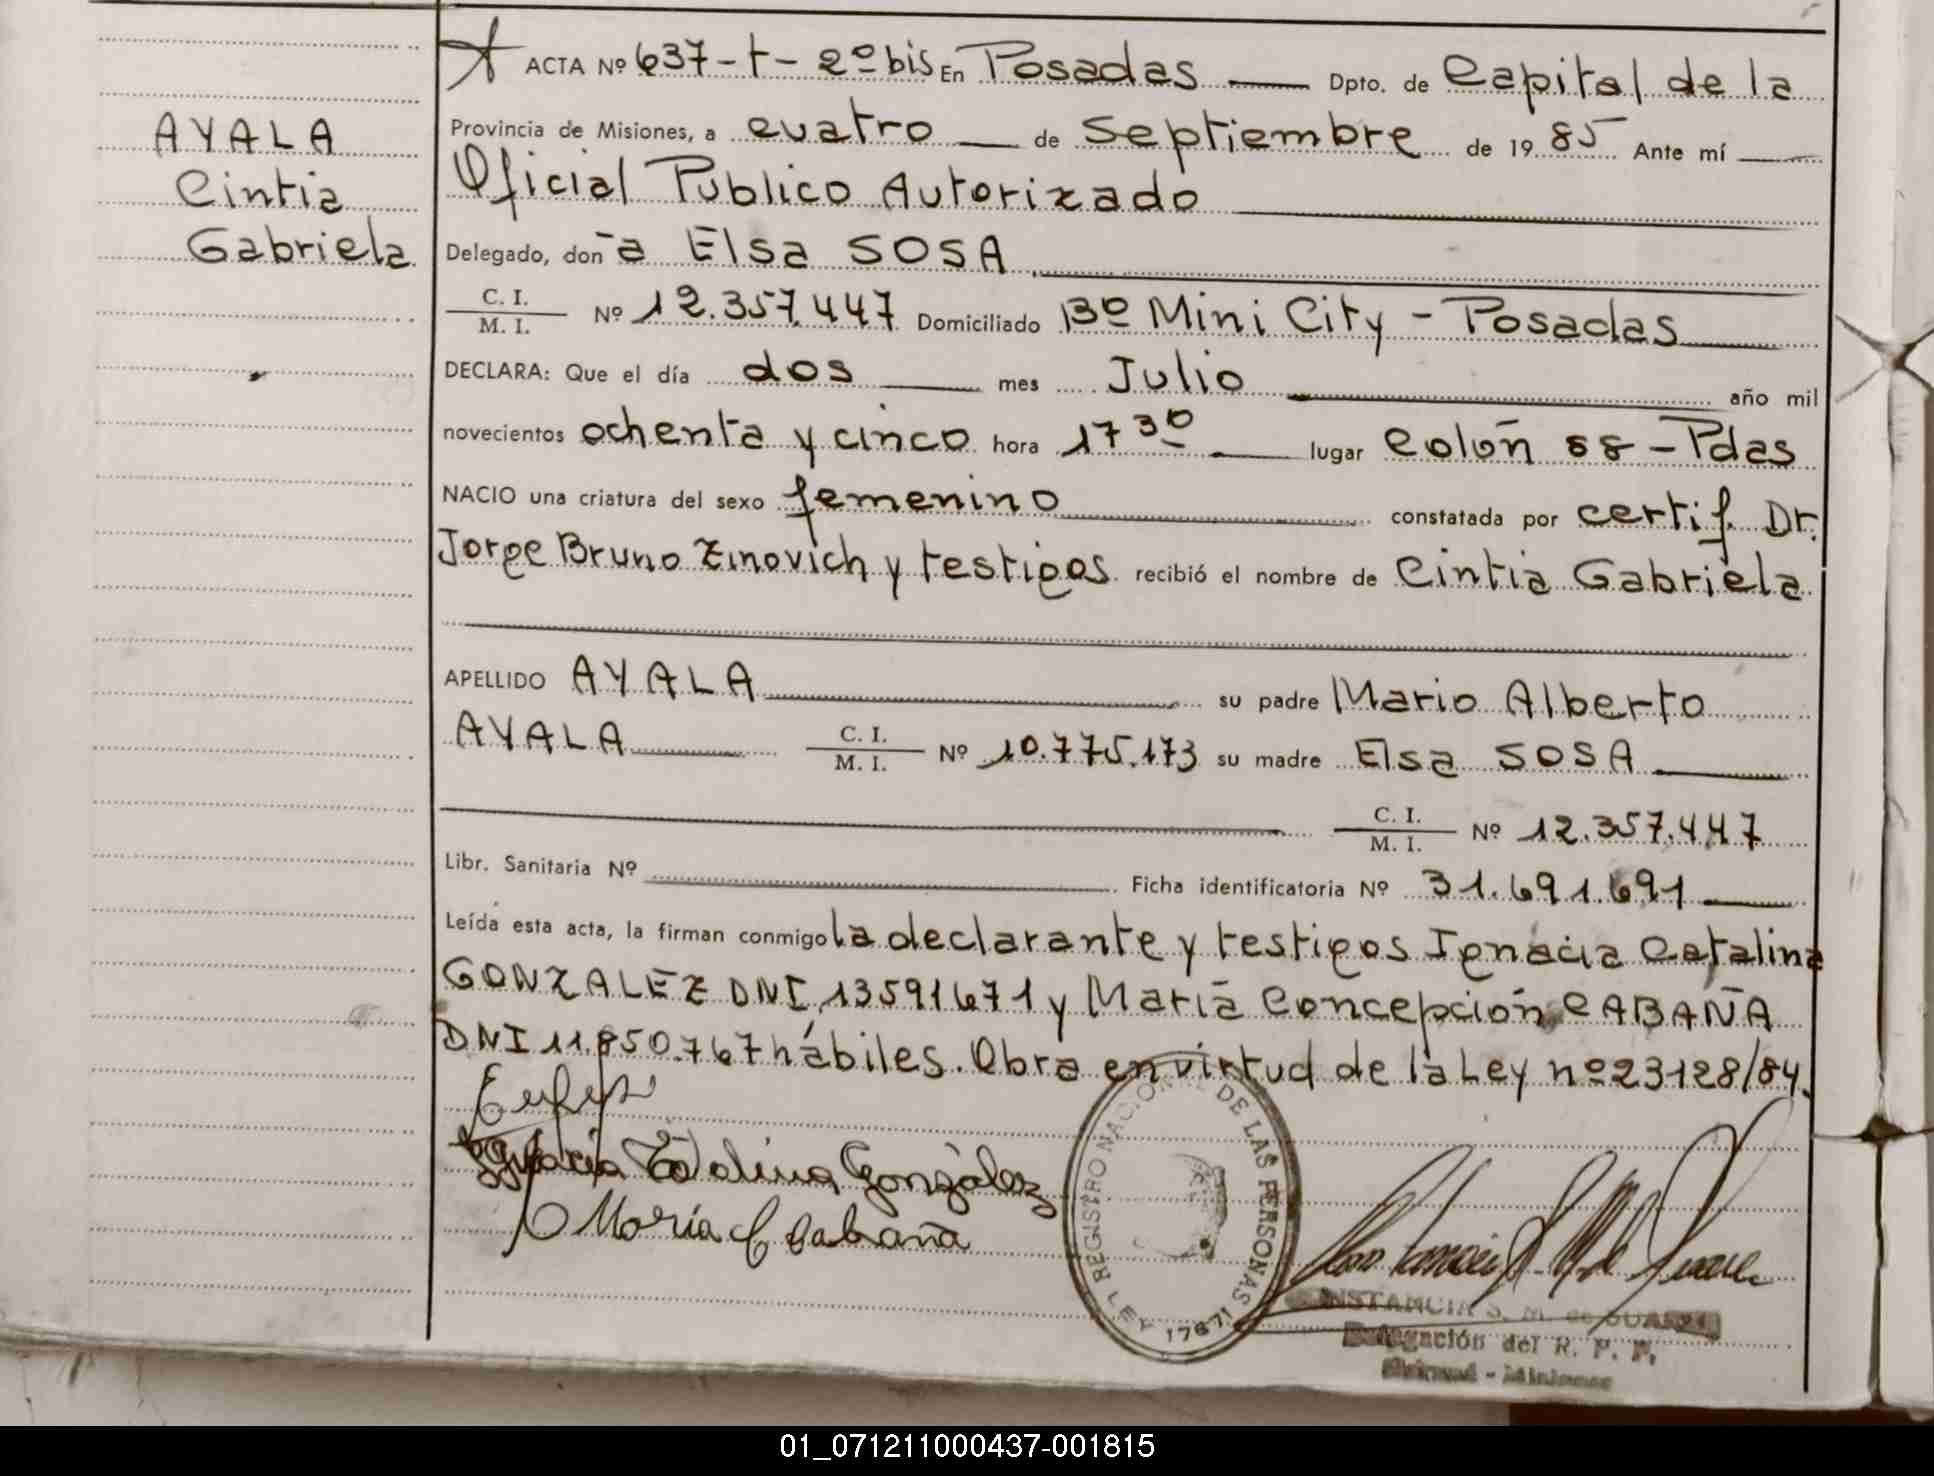 ACTA Nº 637-t-2º bis En Posadas Dpto. de Capital de la
AYALA
Cintia
Gabriela
Provincia de Misiones, a cuatro de Septiembre de 19 85 Ante mí
Oficial Publico Autorizado
Delegado, don a Elsa SOSA
C. I.
M. I. Nº 12.357.447 Domiciliado Bº Mini City - Posadas
DECLARA: Que el día dos mes Julio año mil
novecientos ochenta y cinco hora 17 30 lugar Colón 58 - Pdas
NACIO una criatura del sexo femenino constatada por certif. Dr.
Jorge Bruno Zinovich y testigos recibió el nombre de Cintia Gabriela
APELLIDO AYALA su padre Mario Alberto
AYALA C. I. M. I. Nº 10.775.173 su madre Elsa SOSA
C. I.
M. I. Nº 12.357.447
Libr. Sanitaria Nº Ficha identificatoria Nº 31.691.691
Leída esta acta, la firman conmigo la declarante y testigos Ignacia Catalina
GONZALEZ DNI 13591671 y María Concepción CABAÑA
DNI 11.850.767 hábiles. Obra en virtud de la Ley nº 23128/84.
Ignacia Catalina González
María C Cabaña
REGISTRO NACIONAL DE LAS PERSONAS
LEY 17671
CONSTANCIA S. M. de SUAREZ
Delegación del R. P. P.
01_071211000437-001815